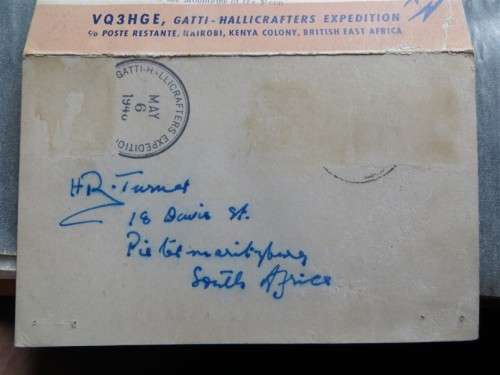 VQ3HGE, GATTI-HALLICRAFTERS EXPEDITION
% POSTE RESTANTE, NAIROBI, KENYA COLONY, BRITISH EAST AFRICA
GATTI-HALLICRAFTERS EXPEDITION
MAY
6
HR. Turner
18 Davis St.
Pietermaritzburg
South Africa